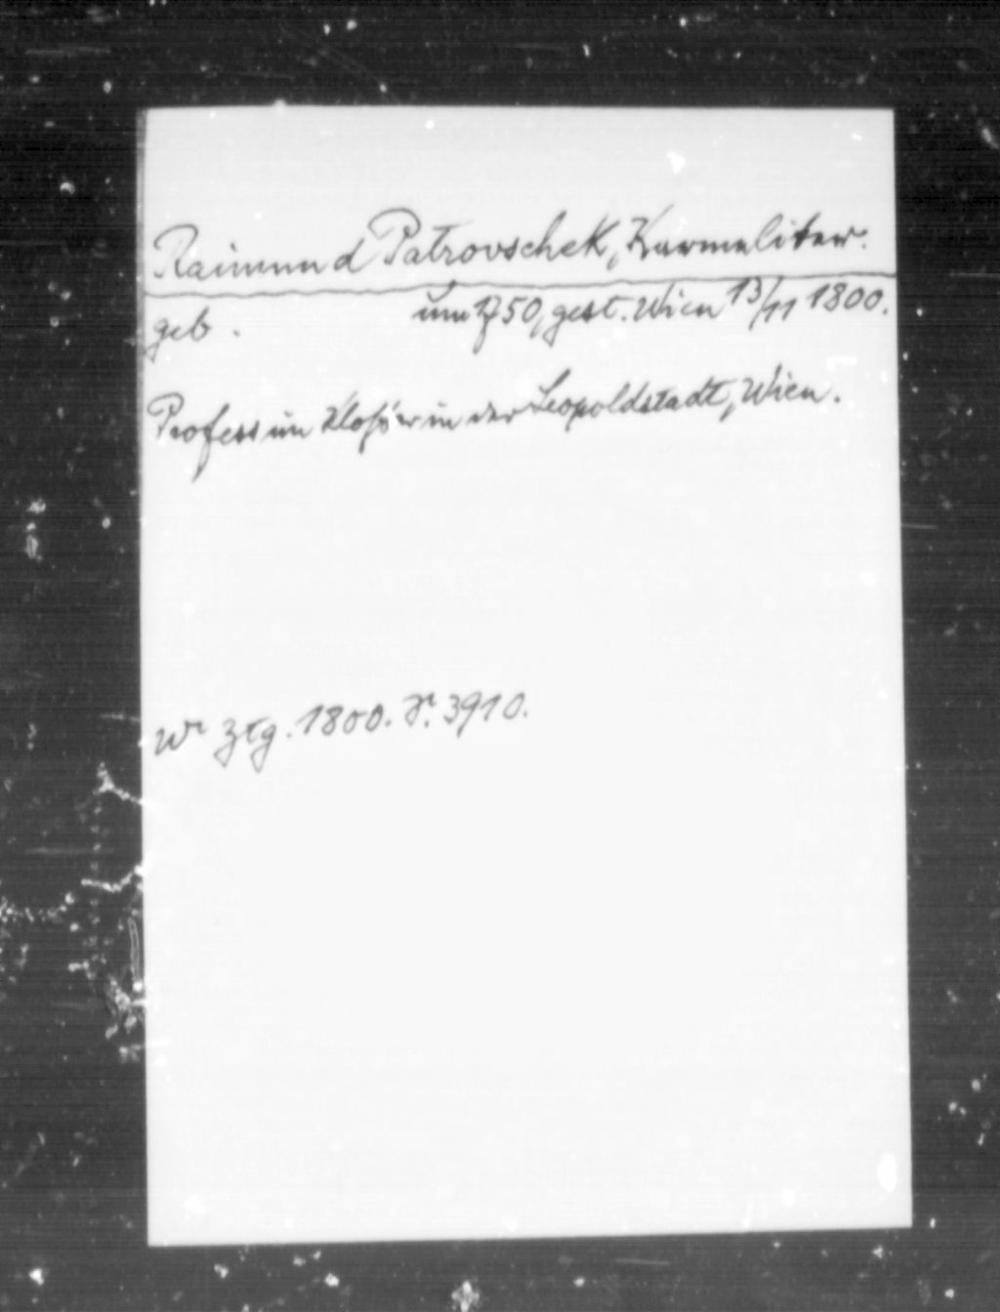 Raimund Patrovschek, Karmeliter.
geb. um 1750, gest. Wien 13/11 1800.
Profess im Kloster in der Leopoldstadt, Wien.
Wr Ztg. 1800. S. 3910.